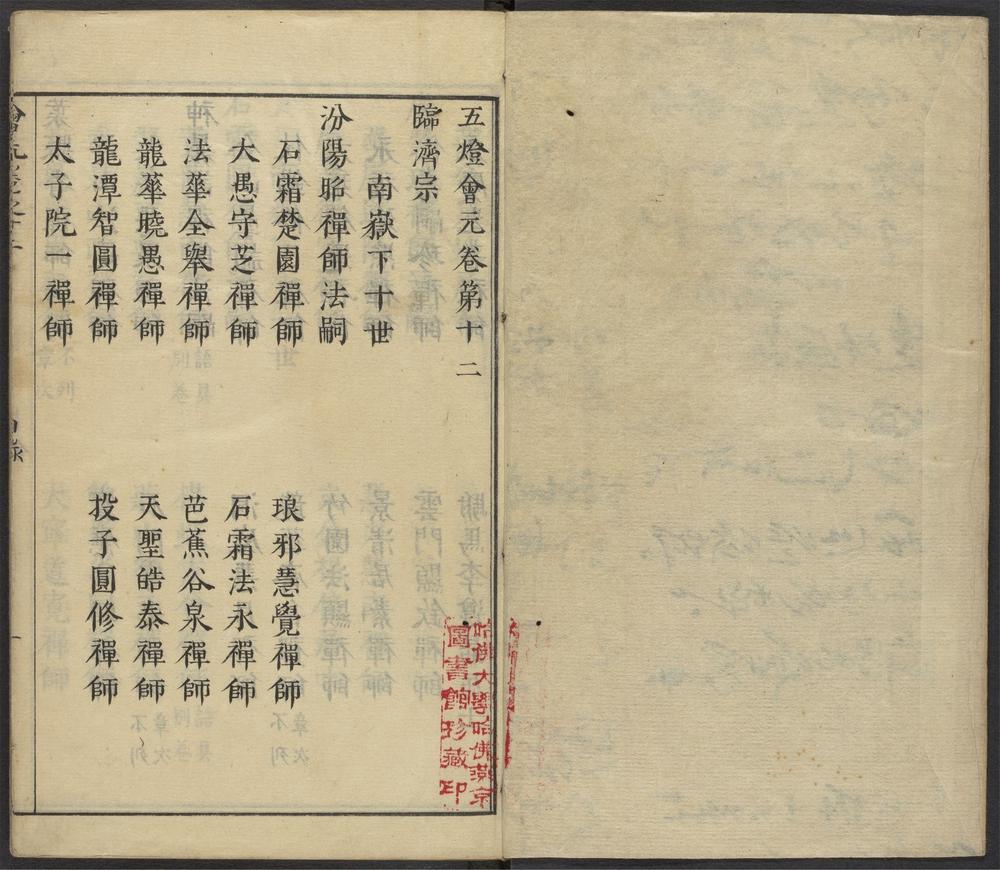 五燈會元卷第十二
臨濟宗
南嶽下十世
汾陽昭禪師法嗣
石霜楚圓禪師
琅邪慧覺禪師
大愚守芝禪師
石霜法永禪師
法華全舉禪師
芭蕉谷泉禪師
龍華曉愚禪師
天聖皓泰禪師
龍潭智圓禪師
投子圓修禪師
太子院一禪師
目錄
一
哈佛大學哈佛燕京
圖書館珍藏印